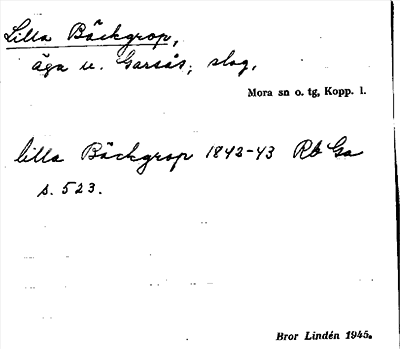 Lilla Bäckgrop,
äga u. Garsås, slog.
Mora sn o. tg, Kopp. l.
lilla Bäckgrop 1842-43 Rb Ga
s. 523.
Bror Lindén 1945.